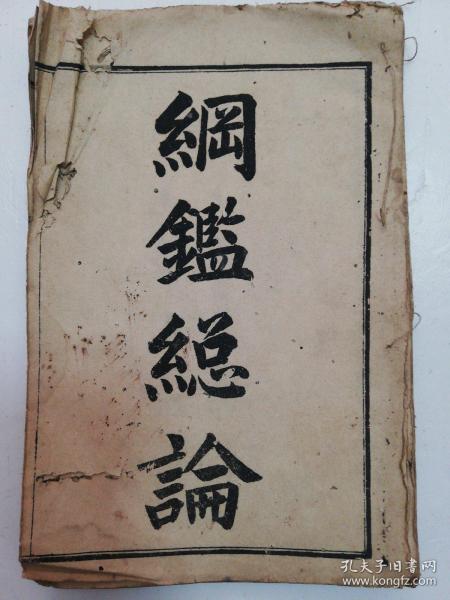 綱鑑緫論
孔夫子旧书网
www.kongfz.com